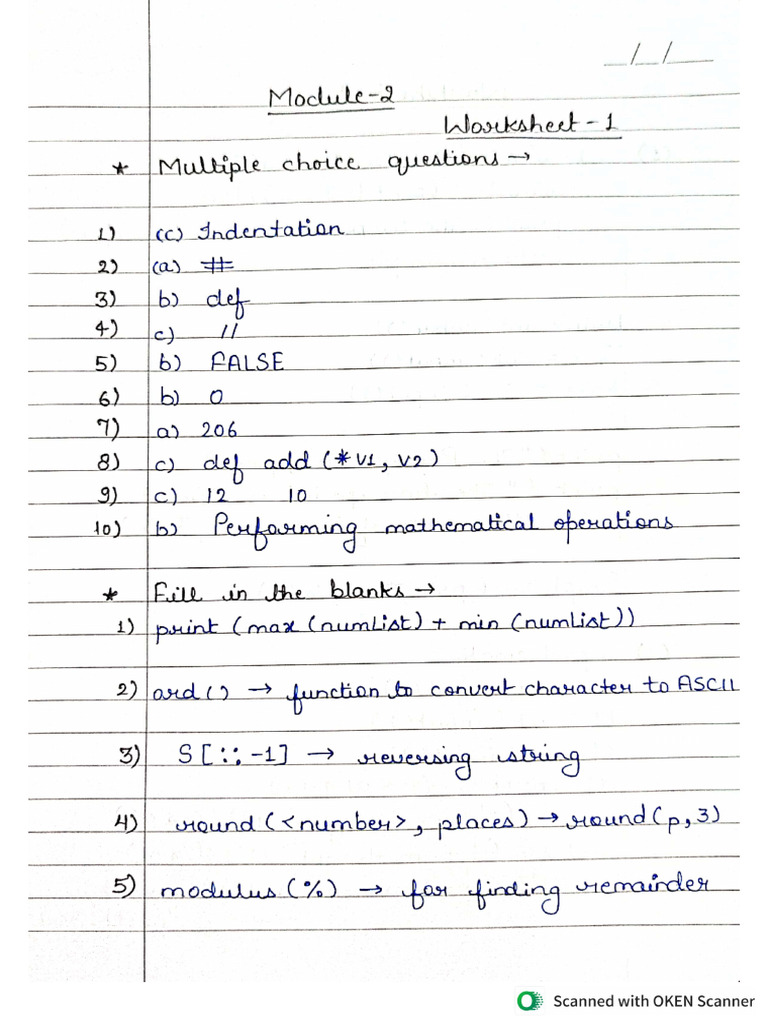 _/_/_
Module-2
Worksheet-1
* Multiple choice questions →
1) (c) Indentation
2) (a) #
3) b) def
4) c) //
5) b) FALSE
6) b) 0
7) a) 206
8) c) def add (*v1, v2)
9) c) 12 10
10) b) Performing mathematical operations
* Fill in the blanks →
1) print (max (numList) + min (numList))
2) ord () → function to convert character to ASCII
3) S[::-1] → reversing string
4) round (<number>, places) → round (p, 3)
5) modulus (%) → for finding remainder
Scanned with OKEN Scanner